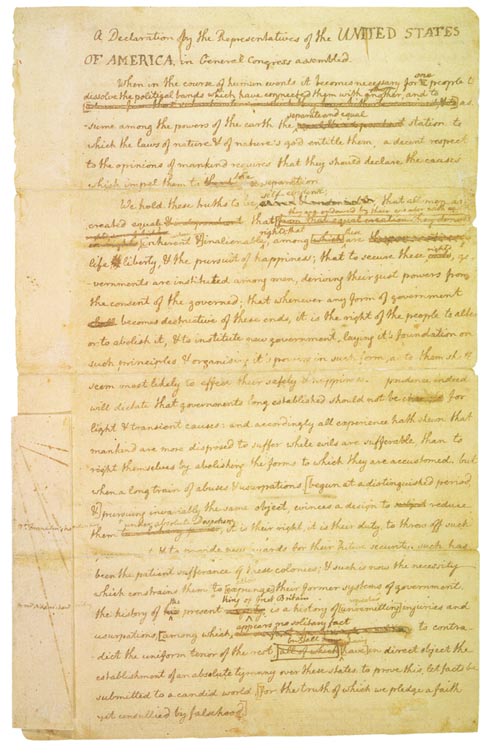 A Declaration by the Representatives of the UNITED STATES
OF AMERICA, in General Congress assembled.
When in the course of human events it becomes necessary for one people to
dissolve the political bands which have connected them with another, and to
as-
separate and equal
-sume among the powers of the earth the station to
which the laws of nature & of nature's god entitle them, a decent respect
to the opinions of mankind requires that they should declare the causes
which impel them to the separation.
self-evident
We hold these truths to be that all men are
they are endowed by their creator with
created equal that from that equal creation they derive
rights that these
inherent & inalienable, among which are
rights
life liberty, & the pursuit of happiness; that to secure these go-
vernments are instituted among men, deriving their just powers from
the consent of the governed; that whenever any form of government
shall becomes destructive of these ends, it is the right of the people to alter
or to abolish it, & to institute new government, laying it's foundation on
such principles & organising it's powers in such form, as to them shall
seem most likely to effect their safety & happiness. prudence indeed
will dictate that governments long established should not be changed for
light & transient causes: and accordingly all experience hath shewn that
mankind are more disposed to suffer while evils are sufferable, than to
right themselves by abolishing the forms to which they are accustomed. but
when a long train of abuses & usurpations [begun at a distinguished period
&] pursuing invariably the same object, evinces a design to reduce
under absolute Despotism
them it is their right, it is their duty, to throw off such
& to provide new guards for their future security. such has
been the patient sufferance of these colonies; & such is now the necessity
which constrains them to [expunge] their former systems of government.
the king of Great Britain
the history of his present is a history of [unremitting] injuries and
appears no solitary fact
usurpations, [among which, to contra-
but all
-dict the uniform tenor of the rest [all of which] have in direct object the
establishment of an absolute tyranny over these states. to prove this, let facts be
submitted to a candid world, [for the truth of which we pledge a faith
yet unsullied by falsehood]